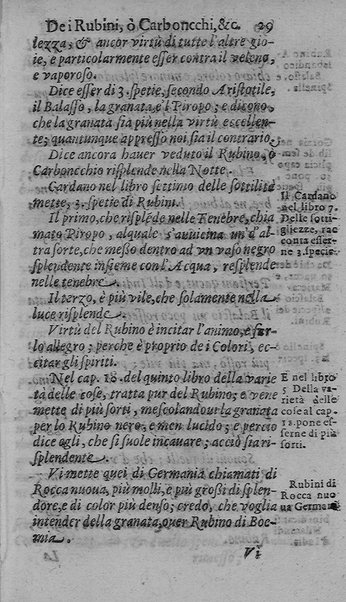 De i Rubini, ò Carboncchi, &c. 29
lezza, & ancor virtù di tutte l'altre gio-
ie, e particolarmente esser contra il veleno,
e vaporoso.
Dice esser di 3. spetie, secondo Aristotile,
il Balasso, la granata, e'l Piropo; e dicono,
che la granata sia più nella virtù eccellen-
te; quantunque appresso noi sia il contrario.
Dice ancora hauer veduto il Rubino, ò
Carboncchio risplende nella Notte.
Cardano nel libro settimo delle sottilità
mette, 3. spetie di Rubini.
Il primo, che risplède nelle Tenebre, chia
mato Piropo, alquale s'auuicina un d'al-
tra sorte, che messo dentro ad vn vaso negro
splendente insieme con l'Acqua, resplende
nelle tenebre.
Il terzo, è più vile, che solamente nella
luce risplende.
Virtù del Rubino è incitar l'animo, e far
lo allegro; perche è proprio de i Colori, ec-
citar gli spiriti.
Nel cap. 18. del quinto libro della varie
tà delle cose, tratta pur del Rubino; e vene
mette di più sorti, mescolandour la granata
per lo Rubino nero, e men lucido; e perciò
dice egli, che si suole incauare; acciò sia ri-
splendente.
Vi mette quei di Germania chiamati di
Rocca nuoua, più molli, e più grossi di splen-
dore, e di color più denso; credo, che voglia
intender della granata, ouer Rubino di Boe-
mia.
Vi
Il Cardano
nel libro 7.
Delle sotti-
gliezze, rac
conta esser-
ne 3. specie.
E nel libro
5 Della va-
rietà delle
cose al cap.
12. pone es-
serne di più
sorti.
Rubini di
Rocca nuo
ua Germani